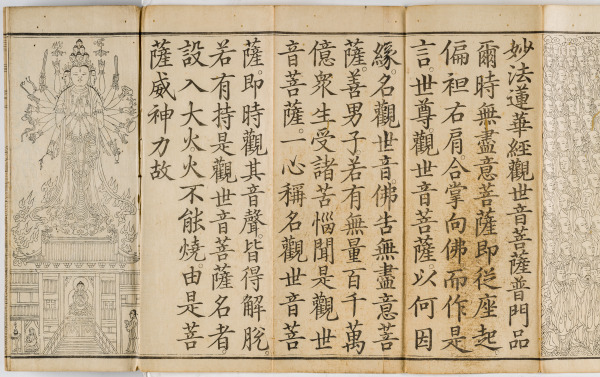 妙法蓮華經觀世音菩薩普門品
爾時無盡意菩薩即從座起
偏袒右肩。合掌向佛而作是
言。世尊。觀世音菩薩。以何因
緣。名觀世音。佛告無盡意菩
薩。善男子若有無量百千萬
億衆生受諸苦惱聞是觀世
音菩薩。一心稱名觀世音菩
薩。即時觀其音聲皆得解脫。
若有持是觀世音菩薩名者。
設入大火火不能燒。由是菩
薩威神力故